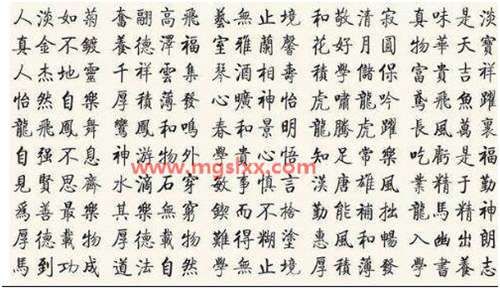 人淡如菊 奮翮高飛 藝無止境 和敬清寂 真味是淡
真金不鍍 養德澤福 室雅蘭馨 花好月圓 物華天寶
人杰地靈 千祥雲集 琴酒相壽 積學儲保 富貴吉祥
怡然自樂 厚積薄發 心曠神怡 虎嘯龍吟 鳶飛魚躍
龍飛鳳舞 鸞鳳和鳴 春和景明 龍騰虎躍 長風萬裏
自强不息 神游物外 學貴心悟 知足常樂 吃虧是福
見賢思齊 水滴石穿 敏事慎言 漢唐雄風 業精于勤
www.mgslxx.com
爲善最樂 其樂無窮 鍥而不捨 勤能補拙 龍馬精神
厚德載物 難得糊塗 惠風和暢 入幽出朗
馬到功成 道法自然 學無止境 厚積薄發 學書養志